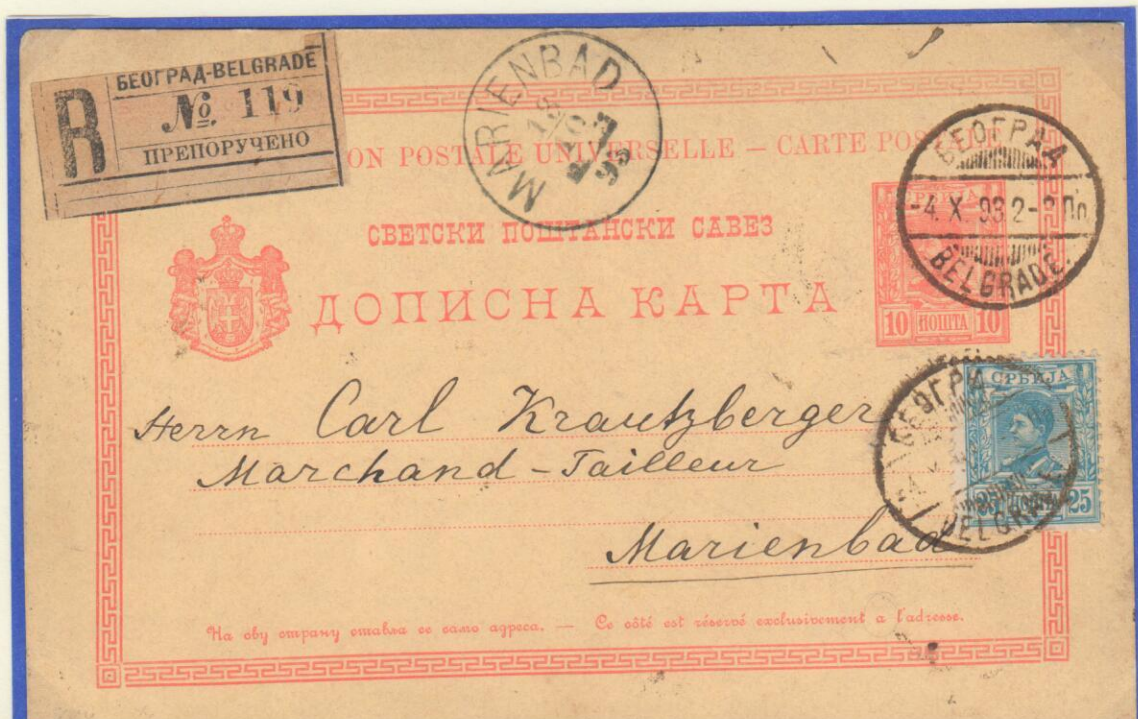 БЕОГРАД-BELGRADE
R № 119
ПРЕПОРУЧЕНО
MARIENBAD
ON POSTALE UNIVERSELLE — CARTE POS
СВЕТСКИ ПОШТАНСКИ САВЕЗ
ДОПИСНА КАРТА
БЕОГРАД
-4.X.93 2-
BELGRADE
10 ПОШТА 10
СРБИЈА
25
БЕОГРА
BELGRADE
Herrn Carl Krautzberger
Marchand-Tailleur
Marienbad
На ову страну ставља се само адреса. — Ce côté est réservé exclusivement a l'adresse.